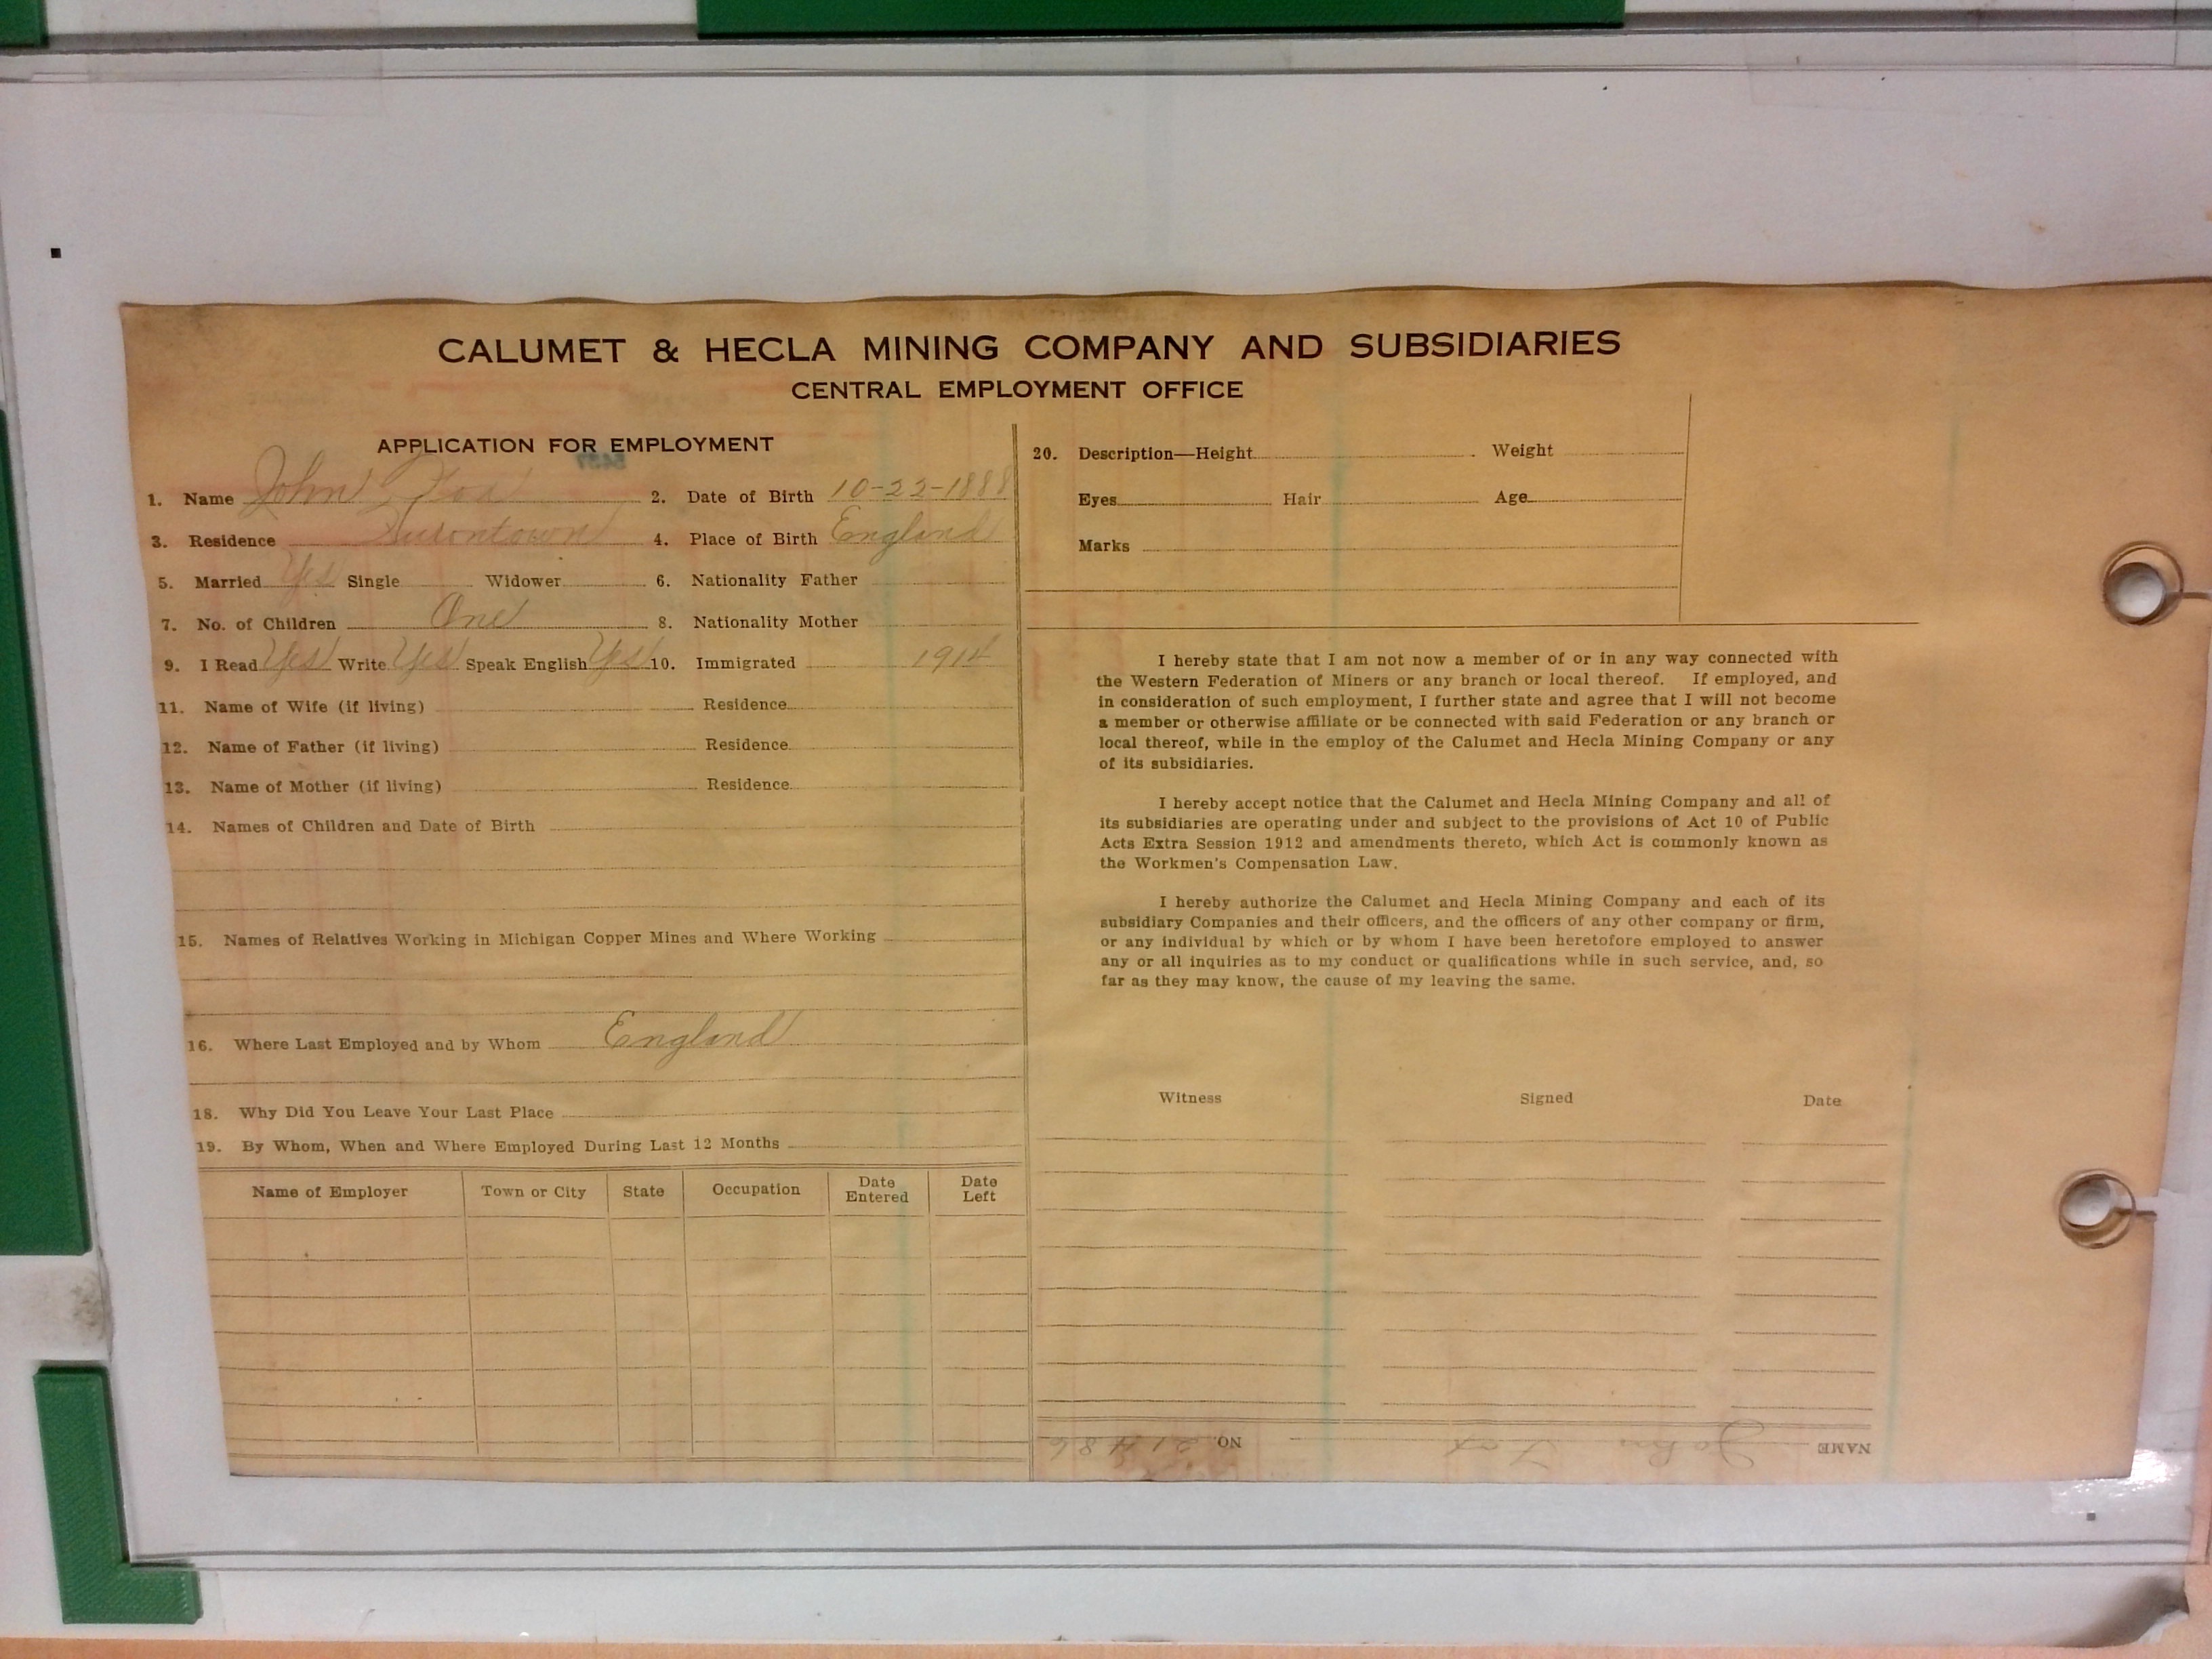 CALUMET & HECLA MINING COMPANY AND SUBSIDIARIES
CENTRAL EMPLOYMENT OFFICE
APPLICATION FOR EMPLOYMENT
1. Name John Fox 2. Date of Birth 10-22-1888
3. Residence Hurontown 4. Place of Birth England
5. Married Yes Single Widower 6. Nationality Father
7. No. of Children One 8. Nationality Mother
9. I Read Yes Write Yes Speak English Yes 10. Immigrated 1914
11. Name of Wife (if living) Residence
12. Name of Father (if living) Residence
13. Name of Mother (if living) Residence
14. Names of Children and Date of Birth
15. Names of Relatives Working in Michigan Copper Mines and Where Working
16. Where Last Employed and by Whom England
18. Why Did You Leave Your Last Place
19. By Whom, When and Where Employed During Last 12 Months
Name of Employer Town or City State Occupation Date Entered Date Left
20. Description—Height Weight
Eyes Hair Age
Marks
I hereby state that I am not now a member of or in any way connected with
the Western Federation of Miners or any branch or local thereof. If employed, and
in consideration of such employment, I further state and agree that I will not become
a member or otherwise affiliate or be connected with said Federation or any branch or
local thereof, while in the employ of the Calumet and Hecla Mining Company or any
of its subsidiaries.
I hereby accept notice that the Calumet and Hecla Mining Company and all of
its subsidiaries are operating under and subject to the provisions of Act 10 of Public
Acts Extra Session 1912 and amendments thereto, which Act is commonly known as
the Workmen's Compensation Law.
I hereby authorize the Calumet and Hecla Mining Company and each of its
subsidiary Companies and their officers, and the officers of any other company or firm,
or any individual by which or by whom I have been heretofore employed to answer
any or all inquiries as to my conduct or qualifications while in such service, and, so
far as they may know, the cause of my leaving the same.
Witness Signed Date
NAME John Fox NO. 21486